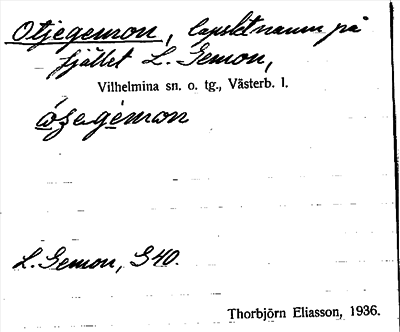 Otjegemon, lapskt namn på
fjället L. Gemon,
Vilhelmina sn. o. tg., Västerb. l.
L. Gemon, S40.
Thorbjörn Eliasson, 1936.